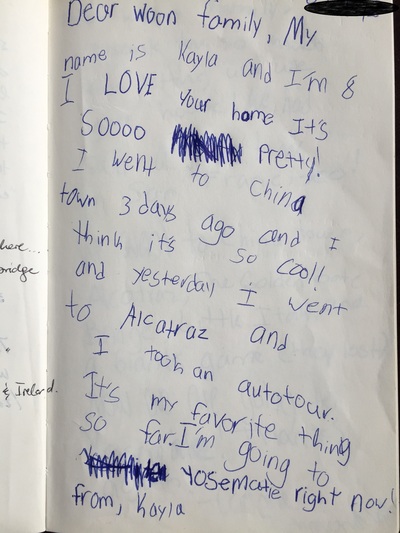 Dear Woon family, My
name is Kayla and I'm 8
I LOVE your home It's
Soooo Pretty!
I went to China
town 3 days ago and I
think it's so cool!
and yesterday I went
to Alcatraz and
I took an autotour.
It's my favorite thing
so far. I'm going to
Yosematie right now!
from, Kayla
here...
ridge
& Ireland.